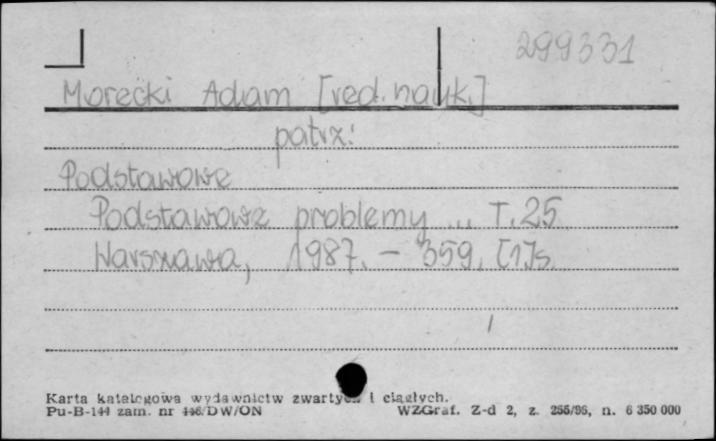 299331
Morecki Adam [red. nauk.]
patrz:
Podstawowe
Podstawowe problemy ... T. 25
Warszawa, 1987. - 359, [1] s.
Karta katalogowa wydawnictw zwartych i ciągłych.
Pu-B-144 zam. nr 446/DW/ON WZGraf. Z-d 2, z. 255/86, n. 6 350 000